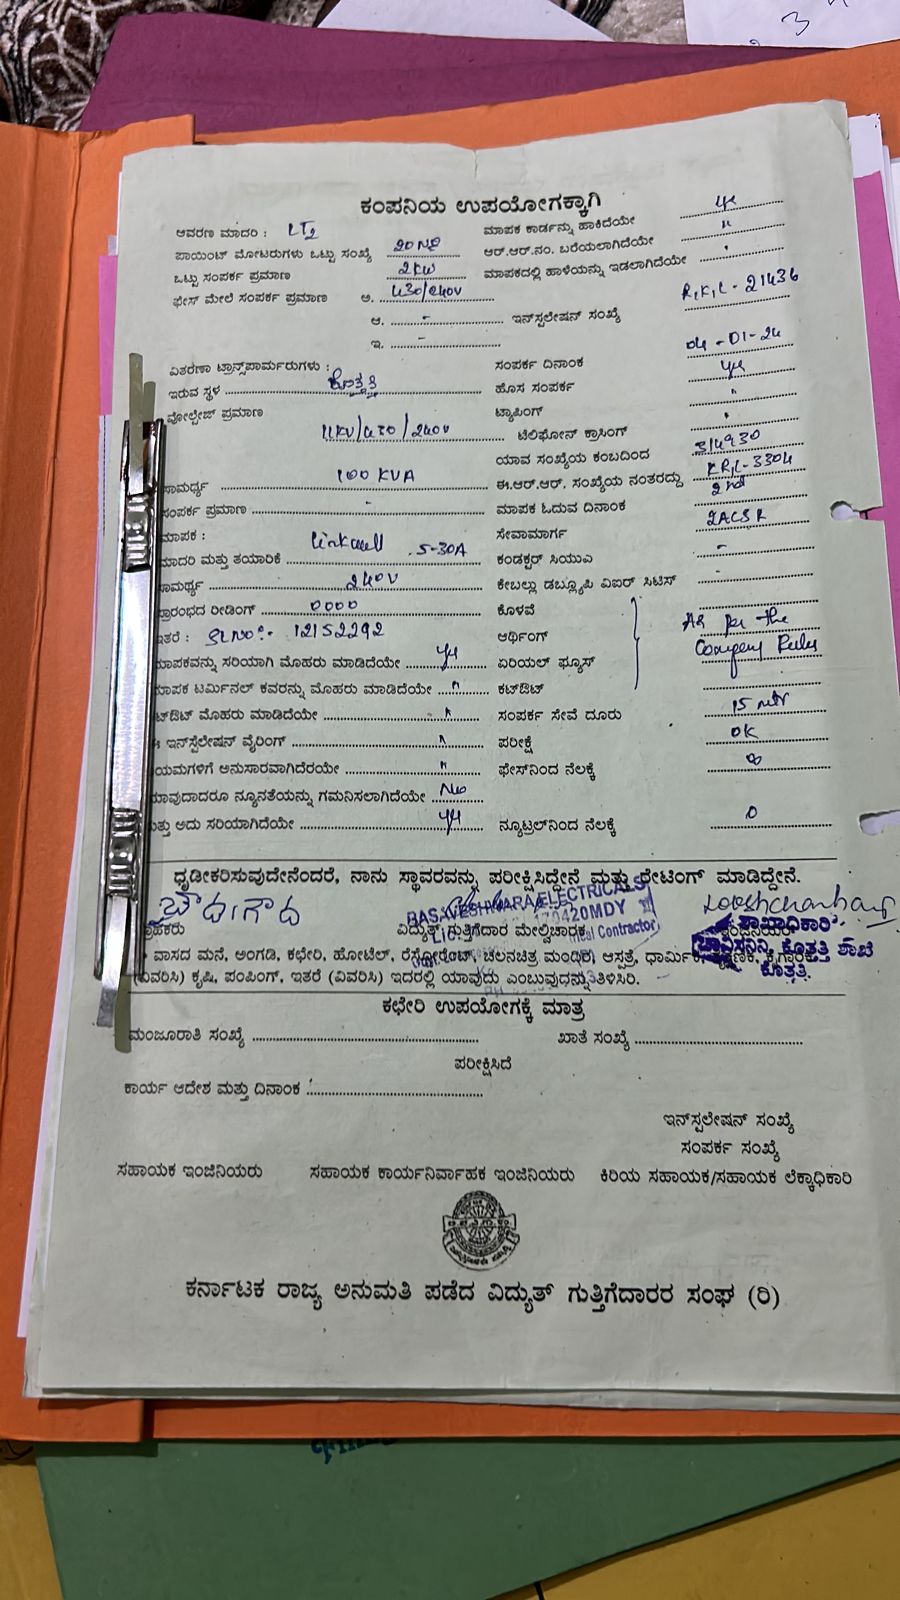 3
ಕಂಪನಿಯ ಉಪಯೋಗಕ್ಕಾಗಿ
ಆವರಣ ಮಾದರಿ : LT2 ಮಾಪಕ ಕಾರ್ಡನ್ನು ಹಾಕಿದೆಯೇ
ಪಾಯಿಂಟ್ ಮೋಟರುಗಳು ಒಟ್ಟು ಸಂಖ್ಯೆ 20 ಆರ್.ಆರ್.ನಂ. ಬರೆಯಲಾಗಿದೆಯೇ "
ಒಟ್ಟು ಸಂಪರ್ಕ ಪ್ರಮಾಣ 2KW ಮಾಪಕದಲ್ಲಿ ಹಾಳೆಯನ್ನು ಇಡಲಾಗಿದೆಯೇ "
ಫೇಸ್ ಮೇಲೆ ಸಂಪರ್ಕ ಪ್ರಮಾಣ ಅ. 430/240V
ಆ. - ಇನ್‌ಸ್ಟಲೇಷನ್ ಸಂಖ್ಯೆ 21436
ಇ. -
ವಿತರಣಾ ಟ್ರಾನ್ಸ್‌ಫಾರ್ಮರುಗಳು : ಸಂಪರ್ಕ ದಿನಾಂಕ 04-01-24
ಇರುವ ಸ್ಥಳ ಕೊತ್ತತ್ತಿ ಹೊಸ ಸಂಪರ್ಕ
ವೋಲ್ಟೇಜ್ ಪ್ರಮಾಣ 11KV/430/240V ಟ್ಯಾಪಿಂಗ್ "
ಟೆಲಿಫೋನ್ ಕ್ರಾಸಿಂಗ್ "
ಯಾವ ಸಂಖ್ಯೆಯ ಕಂಬದಿಂದ
ಸಾಮರ್ಥ್ಯ 100 KVA ಈ.ಆರ್.ಆರ್. ಸಂಖ್ಯೆಯ ನಂತರದ್ದು 3304
ಸಂಪರ್ಕ ಪ್ರಮಾಣ - ಮಾಪಕ ಓದುವ ದಿನಾಂಕ 2nd
ಮಾಪಕ : ಸೇವಾಮಾರ್ಗ
ಮಾದರಿ ಮತ್ತು ತಯಾರಿಕೆ Linkwell 5-30A ಕಂಡಕ್ಟರ್ ಸಿಯುಎ -
ಸಾಮರ್ಥ್ಯ 240V ಕೇಬಲ್ಲು ಡಬ್ಲ್ಯೂಪಿ ವಿಐರ್ ಸಿಟಿಸ್ -
ಪ್ರಾರಂಭದ ರೀಡಿಂಗ್ 0000 ಕೊಳವೆ
ಇತರೆ : Sl No:- 12152292 ಆರ್ಥಿಂಗ್ As per the
ಮಾಪಕವನ್ನು ಸರಿಯಾಗಿ ಮೊಹರು ಮಾಡಿದೆಯೇ ಏರಿಯಲ್ ಫ್ಯೂಸ್ Company Rules
ಮಾಪಕ ಟರ್ಮಿನಲ್ ಕವರನ್ನು ಮೊಹರು ಮಾಡಿದೆಯೇ " ಕಟ್‌ಔಟ್
ಕಟ್‌ಔಟ್ ಮೊಹರು ಮಾಡಿದೆಯೇ " ಸಂಪರ್ಕ ಸೇವೆ ದೂರು 15 mtr
ಇನ್‌ಸ್ಟೆಲೇಷನ್ ವೈರಿಂಗ್ " ಪರೀಕ್ಷೆ OK
ನಿಯಮಗಳಿಗೆ ಅನುಸಾರವಾಗಿದೆರಯೇ " ಫೇಸ್‌ನಿಂದ ನೆಲಕ್ಕೆ ∞
ಯಾವುದಾದರೂ ನ್ಯೂನತೆಯನ್ನು ಗಮನಿಸಲಾಗಿದೆಯೇ No
ಮತ್ತು ಅದು ಸರಿಯಾಗಿದೆಯೇ ನ್ಯೂಟ್ರಲ್‌ನಿಂದ ನೆಲಕ್ಕೆ 0
ಧೃಡೀಕರಿಸುವುದೇನೆಂದರೆ, ನಾನು ಸ್ಥಾವರವನ್ನು ಪರೀಕ್ಷಿಸಿದ್ದೇನೆ ಮತ್ತು ರೇಟಿಂಗ್ ಮಾಡಿದ್ದೇನೆ.
BASAVESHWARA ELECTRICALS
ಗ್ರಾಹಕರು ವಿದ್ಯುತ್ ಗುತ್ತಿಗೆದಾರ ಮೇಲ್ವಿಚಾರಕ ಶಾಖಾಧಿಕಾರಿ
ಚಾವಿಸನಿನಿ, ಕೊತ್ತತ್ತಿ ಶಾಖೆ
ಕೊತ್ತತ್ತಿ.
ವಾಸದ ಮನೆ, ಅಂಗಡಿ, ಕಛೇರಿ, ಹೋಟೆಲ್, ರೆಸ್ಟೋರೆಂಟ್, ಚಲನಚಿತ್ರ ಮಂದಿರ, ಆಸ್ಪತ್ರೆ, ಧಾರ್ಮಿಕ
(ವಿವರಿಸಿ) ಕೃಷಿ, ಪಂಪಿಂಗ್, ಇತರೆ (ವಿವರಿಸಿ) ಇದರಲ್ಲಿ ಯಾವುದು ಎಂಬುವುದನ್ನು ತಿಳಿಸಿರಿ.
ಕಛೇರಿ ಉಪಯೋಗಕ್ಕೆ ಮಾತ್ರ
ಮಂಜೂರಾತಿ ಸಂಖ್ಯೆ ಖಾತೆ ಸಂಖ್ಯೆ
ಪರೀಕ್ಷಿಸಿದೆ
ಕಾರ್ಯ ಆದೇಶ ಮತ್ತು ದಿನಾಂಕ :
ಇನ್‌ಸ್ಪಲೇಷನ್ ಸಂಖ್ಯೆ
ಸಂಪರ್ಕ ಸಂಖ್ಯೆ
ಸಹಾಯಕ ಇಂಜಿನಿಯರು ಸಹಾಯಕ ಕಾರ್ಯನಿರ್ವಾಹಕ ಇಂಜಿನಿಯರು ಕಿರಿಯ ಸಹಾಯಕ/ಸಹಾಯಕ ಲೆಕ್ಕಾಧಿಕಾರಿ
ಕರ್ನಾಟಕ ರಾಜ್ಯ ಅನುಮತಿ ಪಡೆದ ವಿದ್ಯುತ್ ಗುತ್ತಿಗೆದಾರರ ಸಂಘ (ರಿ)